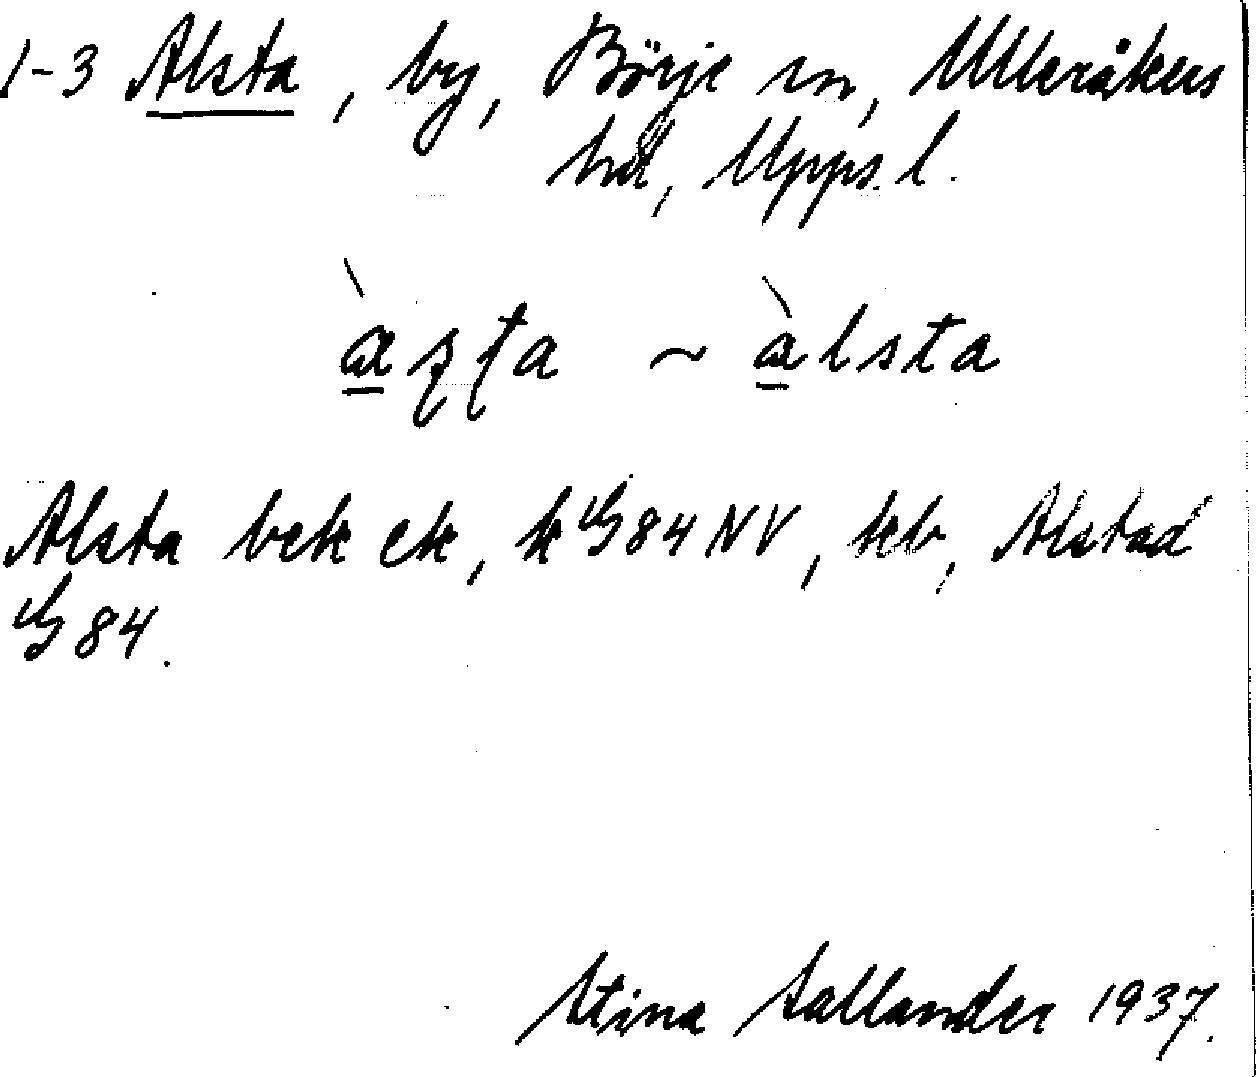 1-3 Alsta, by, Börje sn, Ulleråkers
hd, Upps. l.
àʂʈa ~ àlsta
Alsta bek ek, k G84 NV, kb, Alstad
G 84.
Stina Sallander 1937.